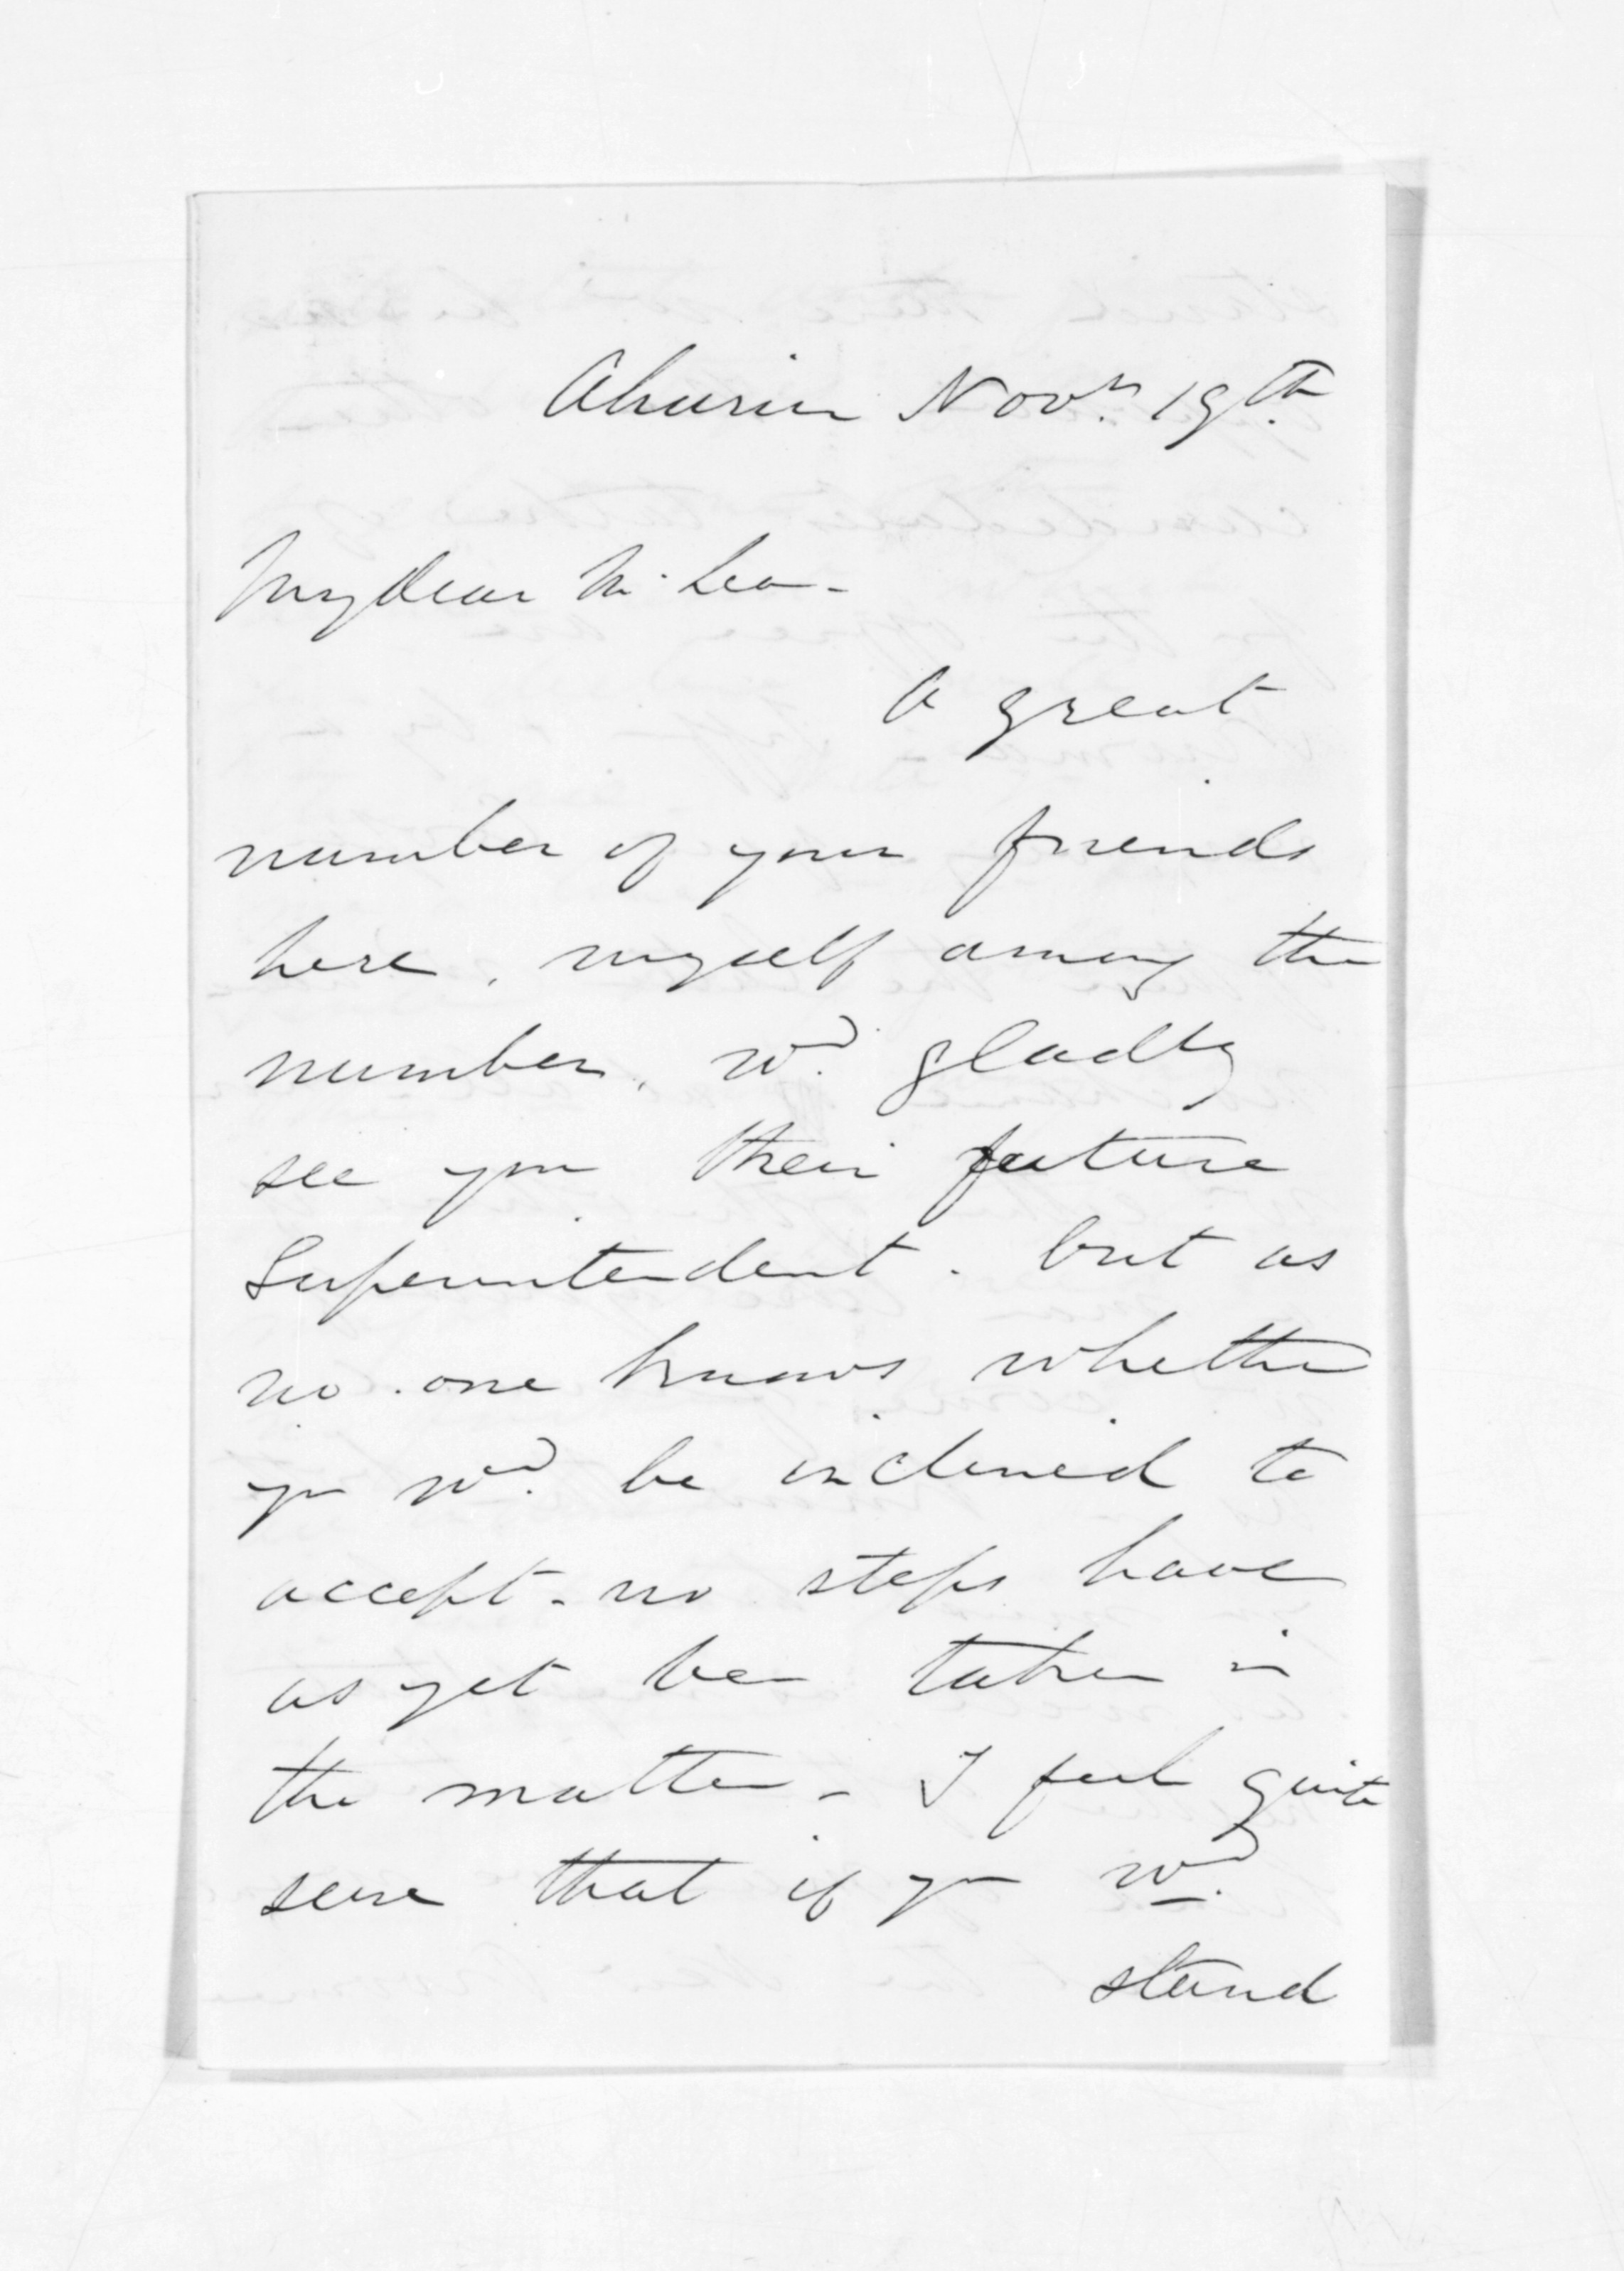 Ahuriri Novr. 19th.
My dear McLean -
A great
number of your friends
here, myself among the
number, wd. gladly
see you their future
Superintendent. but as
no one knows whether
you wd. be inclined to
accept - no steps have
as yet been taken in
the matter - I feel quite
sure that if you wd.
stand